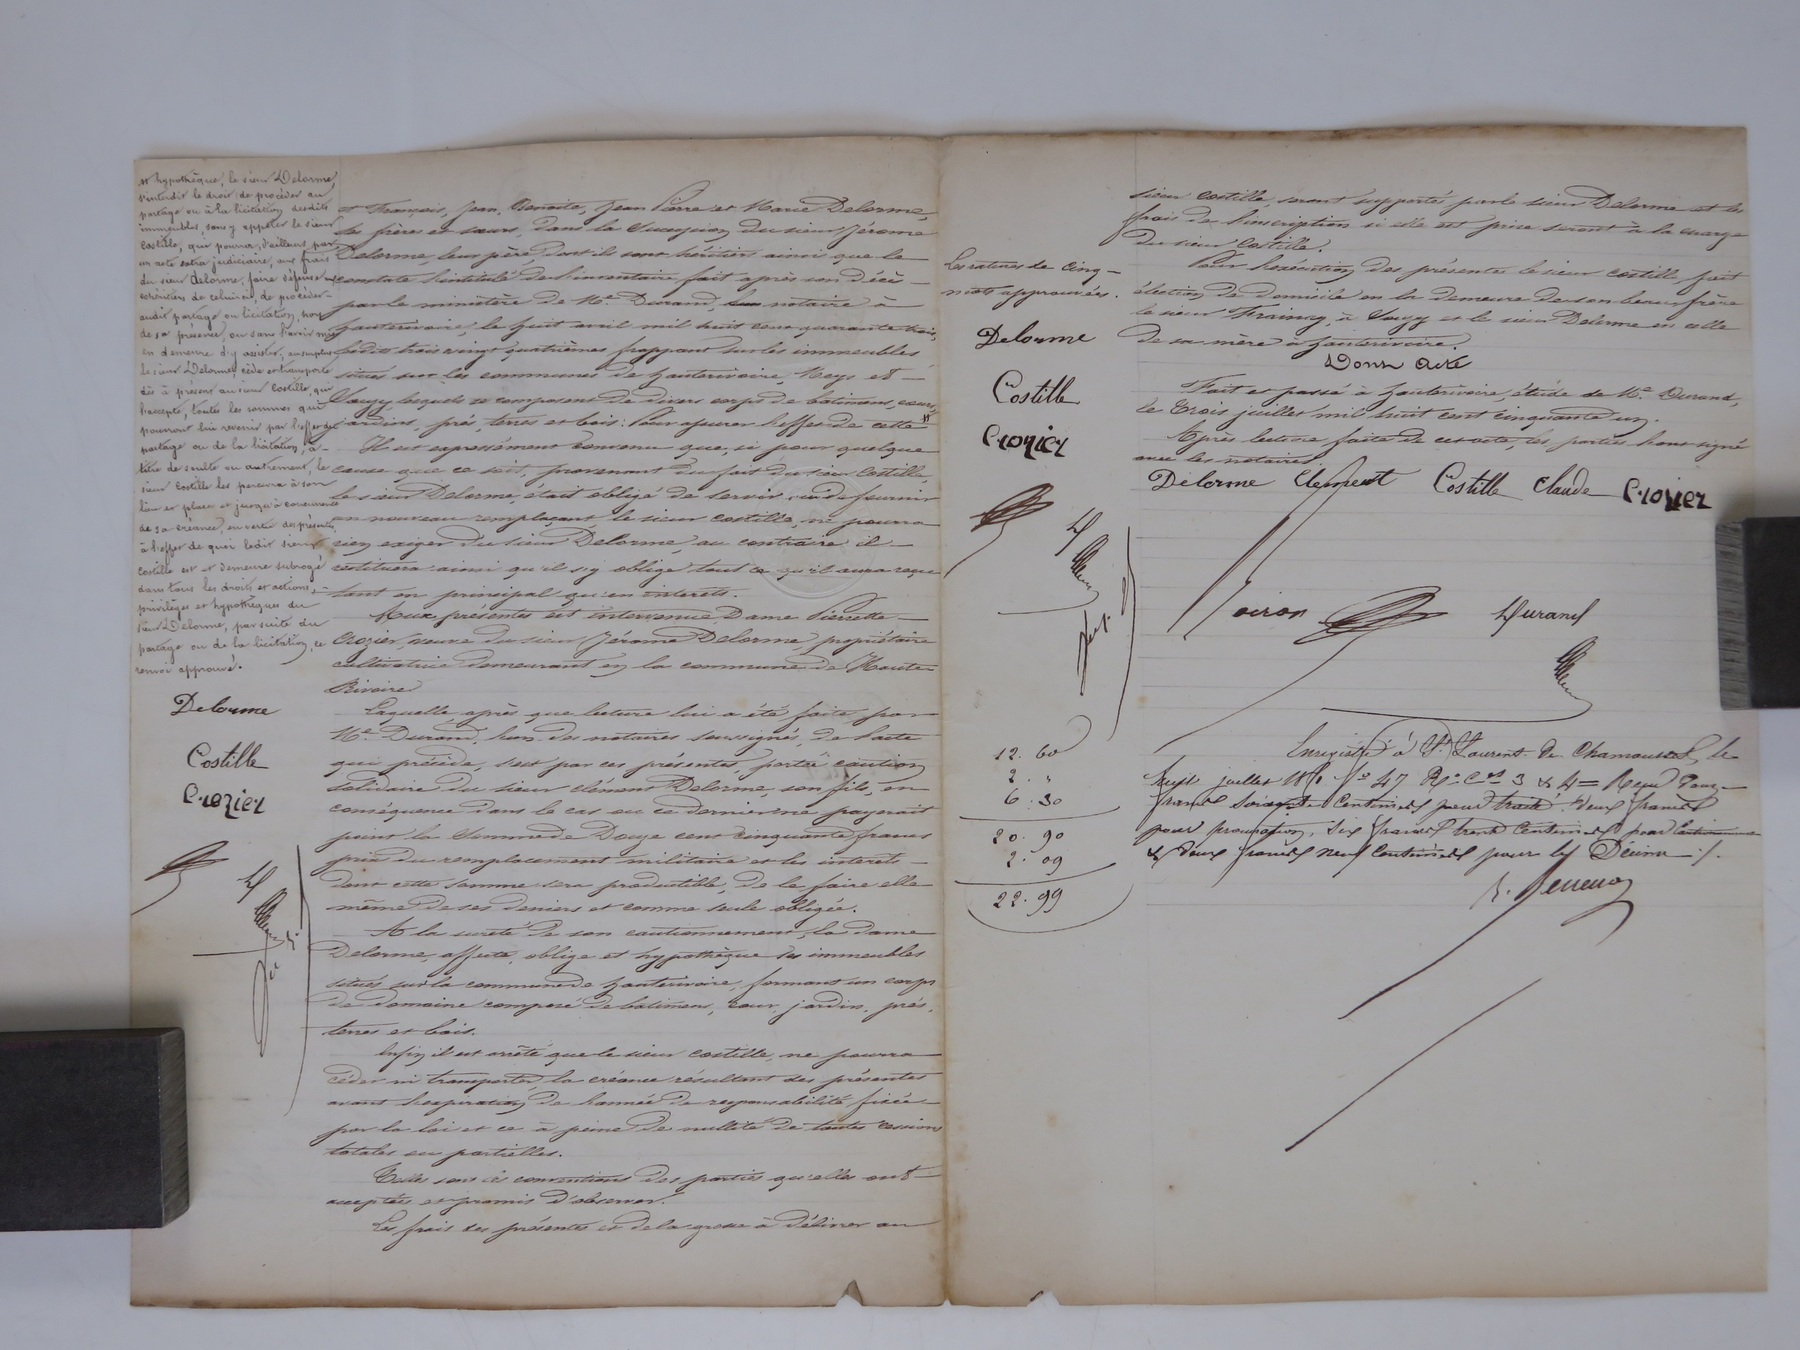 # hypothèque, le sieur Delorme,
s'interdit le droit de procéder au
partage ou à la licitation desdits
immeubles, sans y appeler le sieur
Costille, qui pourra, d'ailleurs, par
un acte extra judiciaire, aux frais
du sieur Delorme, faire défense aux
cohéritiers de celui-ci, de procéder
audit partage ou licitation, hors
de sa présence, ou sans l'avoir mis
en demeure d'y assister, en outre
le sieur Delorme, cède et transporte
dès à présent au sieur Costille, qui
l'accepte, toutes les sommes qui
pourront lui revenir par l'effet du
partage ou de la licitation, à
titre de soulte ou autrement, le
sieur Costille les percevra à son
lieu et place et jusqu'à concurrence
de sa créance, en vertu des présentes,
à l'effet de quoi ledit sieur
Costille est et demeure subrogé
dans tous les droits et actions,
privilèges et hypothèques du
sieur Delorme, par suite du
partage ou de la licitation, ce
renvoi approuvé.
Delorme
Costille
Crozier
et François, Jean, Benoite, Jean Pierre et Marie Delorme,
ses frères et sœurs, dans la succession du sieur Jérome
Delorme, leur père dont ils sont héritiers ainsi que le
constate l'intitulé de l'inventaire fait après son décès
par le ministère de Me Durand, notaire à
hauterivoire, le huit avril mil huit cent quarante trois,
lesdits trois vingt quatrièmes frappant sur les immeubles
situés sur les communes de hauterivoire, Meys et
Souzy, lesquels se composent de divers corps de batimens, cours,
jardins, prés, terres et bois : Pour assurer l'effet de cette #
Il est expressément convenu que, si pour quelque
cause que ce soit, provenant du fait du sieur Costille,
le sieur Delorme, était obligé de servir, ou de fournir
un nouveau remplaçant, le sieur Costille, ne pourra
rien exiger du sieur Delorme, au contraire il
restituera ainsi qu'il s'y oblige tout ce qu'il aura reçu
tant en principal qu'en interets.
Aux présentes est intervenue Dame Pierrette
Crozier, veuve du sieur Jérome Delorme, propriétaire
cultivatrice demeurant en la commune de Haute
Rivoire
Laquelle, après que lecture lui a été faite par
Me Durand, l'un des notaires soussignés, de l'acte
qui précède, s'est par ces présentes, portée caution
solidaire du sieur clément Delorme, son fils, en
conséquence dans le cas ou ce dernier ne payerait
point la somme de Douze cent cinquante francs
prix du remplacement militaire et les interets
dont cette somme sera productible, de le faire elle
même de ses deniers et comme seule obligée.
A la sureté de son cautionnement, la dame
Delorme, affecte, oblige et hypothèque ses immeubles
situés sur la commune de hauterivoire, formant un corps
de domaine composé de batimens, cour, jardin, prés,
terres et bois.
Enfin il est arrêté que le sieur Costille, ne pourra
céder ni transporter la créance résultant des présentes
avant l'expiration de l'année de responsabilité fixée
par la loi et ce à peine de nullité de toutes cessions
totales ou partielles.
Telles sont les conventions des parties qu'elles ont
acceptées et promis d'observer.
Les frais des présentes et de la grosse à délivrer au
sieur Costille, seront supportés par le sieur Delorme et les
frais de l'inscription si elle est prise seront à la charge
du sieur Costille.
Pour l'exécution des présentes le sieur Costille, fait
élection de domicile en la demeure de son beau frère
le sieur à Souzy et le sieur Delorme en celle
de sa mère à hauterivoire.
Dont acte
Fait et passé à hauterivoire, étude de Me Durand,
le trois juillet mil huit cent cinquante un.
Après lecture faite de cet acte, les parties l'ont signé
avec les notaires
Delorme Clement Costille Claude Crozier
Les ratures de cinq
mots approuvées.
Delorme
Costille
Crozier
Voiron Durand
12. 60
2. "
6. 30
20. 90
2. 09
22. 99
Enregistré à St Laurent de Chamousset, le
huit juillet 1851 fo 47 Ro Ces 3 & 4 = Reçu Douze
francs soixante centimes pour traité, deux francs
pour procuration, six francs trente centimes pour
& deux francs neuf centimes pour le Décime ./.